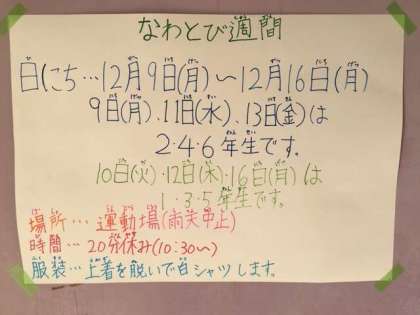 なわとび週間
日にち…12月9日(月)〜12月16日(月)
9日(月)、11日(水)、13日(金)は
2・4・6年生です。
10日(火)・12日(木)・16日(月)は
1・3・5年生です。
場所…運動場(雨天中止)
時間…20分休み(10:30〜)
服装…上着を脱いで白シャツします。